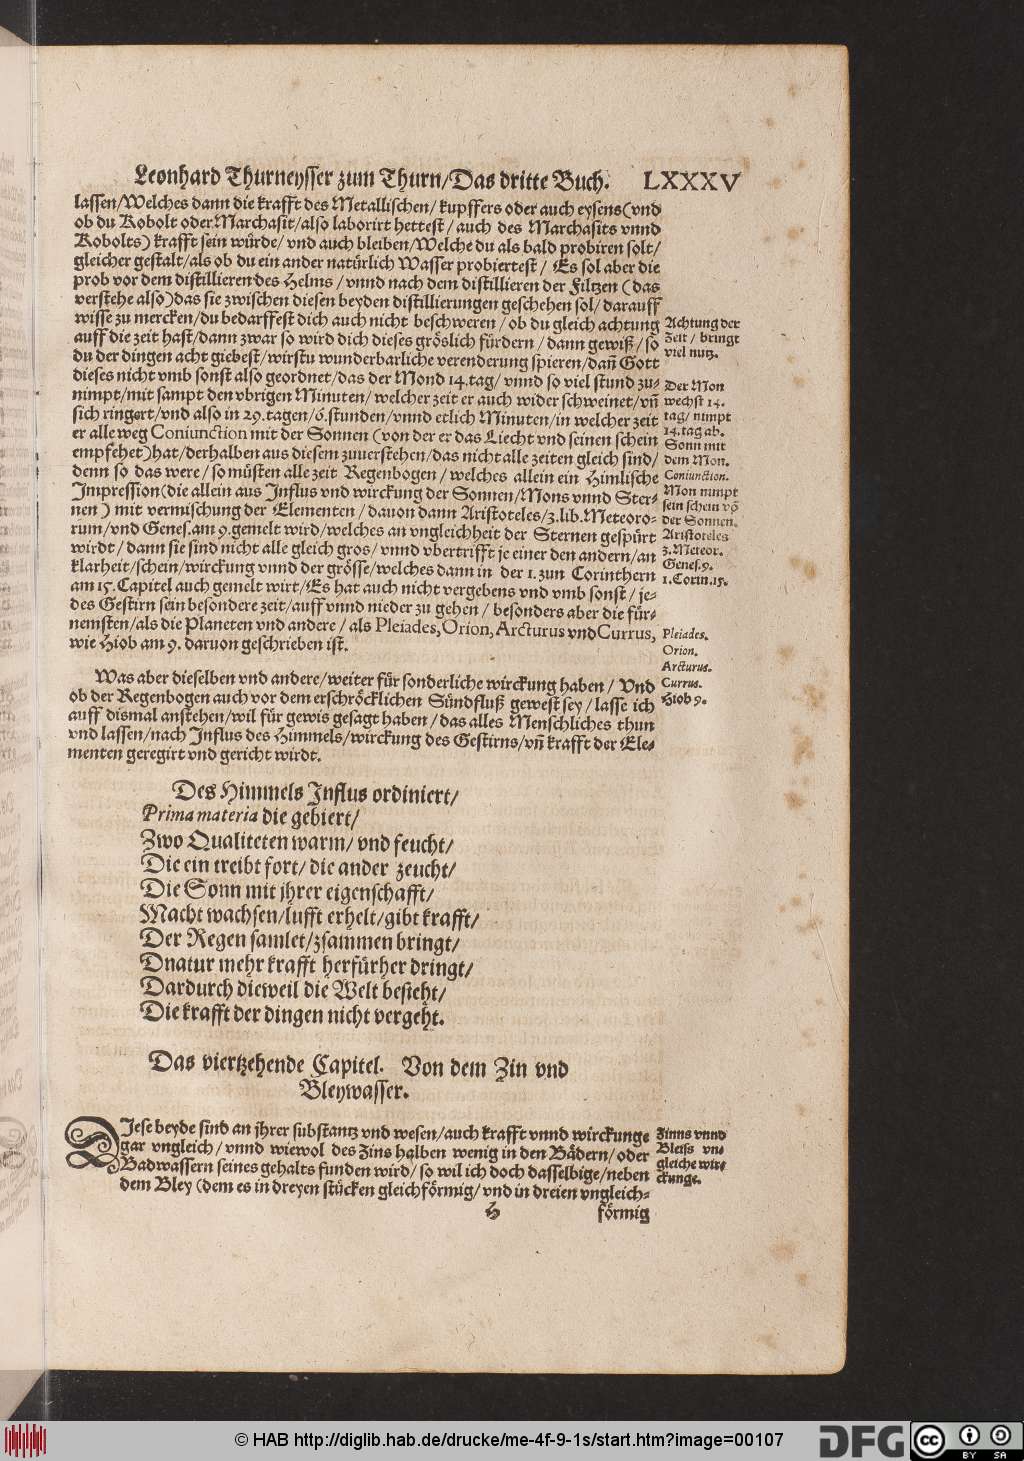 Leonhard Thurneysser zum Thurn/Das dritte Buch. LXXXV
lassen/Welches dann die krafft des Metallischen/ kupffers oder auch eysens(vnd
ob du Kobolt oder Marchasit/also laborirt hettest/ auch des Marchasits vnnd
Kobolts) krafft sein würde/ vnd auch bleiben/Welche du als bald probiren solt/
gleicher gestalt/als ob du ein ander natürlich Wasser probiertest/ Es sol aber die
prob vor dem distillieren des Helms / vnnd nach dem distillieren der Filtzen (das
verstehe also)das sie zwischen diesen beyden distillierungen geschehen sol/ darauff
wisse zu mercken/du bedarffest dich auch nicht beschweren / ob du gleich achtung
auff die zeit hast/dann zwar so wird dich dieses gröslich fürdern / dann gewiß/ so
du der dingen acht giebest/ wirstu wunderbarliche verenderung spieren/dañ Gott
dieses nicht vmb sonst also geordnet/das der Mond 14.tag/ vnnd so viel stund zu-
nimpt/mit sampt den vbrigen Minuten/ welcher zeit er auch wider schweinet/vñ
sich ringert/vnd also in 29.tagen/6.stunden/vnnd etlich Minuten/in welcher zeit
er alle weg Coniunction mit der Sonnen (von der er das Liecht vnd seinen schein
empfehet)hat/derhalben aus diesem zuuerstehen/das nicht alle zeiten gleich sind/
denn so das were/so müsten alle zeit Regenbogen/ welches allein ein Himlische
Impression(die allein aus Influs vnd wirckung der Sonnen/Mons vnnd Ster-
nen) mit vermischung der Elementen / dauon dann Aristoteles/3.lib.Meteoro-
rum/vnd Genes.am 9.gemelt wird/welches an vngleichheit der Sternen gespürt
wirdt / dann sie sind nicht alle gleich gros/ vnnd vbertrifft je einer den andern/an
klarheit/schein/wirckung vnnd der grösse/welches dann in der 1.zun Corinthern
am 15.Capitel auch gemelt wirt/Es hat auch nicht vergebens vnd vmb sonst / je-
des Gestirn sein besondere zeit/auff vnnd nieder zu gehen / besonders aber die für-
nemsten/als die Planeten vnd andere / als Pleiades, Orion, Arcturus vnd Currus,
wie Hiob am 9. daruon geschrieben ist.
Achtung der
Zeit / bringt
viel nutz.
Der Mon
wechst 14.
tag/ nimpt
14.tag ab.
Sonn mit
dem Mon.
Coniunction.
Mon nimpt
sein schein võ
der Sonnen.
Aristoteles
3.Meteor.
Genes.9.
1.Corin.15.
Pleiades.
Orion.
Arcturus.
Currus.
Hiob 9.
Was aber dieselben vnd andere/weiter für sonderliche wirckung haben/ Vnd
ob der Regenbogen auch vor dem erschröcklichen Sündfluß gewest sey / lasse ich
auff dismal anstehen/wil für gewis gesagt haben / das alles Menschliches thun
vnd lassen/nach Influs des Himmels/wirckung des Gestirns/vñ krafft der Ele-
menten geregirt vnd gericht wirdt.
Des Himmels Influs ordiniert/
Prima materia die gebiert/
Zwo Qualiteten warm/ vnd feucht/
Die ein treibt fort/ die ander zeucht/
Die Sonn mit jhrer eigenschafft/
Macht wachsen/lufft erhelt/gibt krafft/
Der Regen samlet/zsammen bringt/
Dnatur mehr krafft herfürher dringt/
Dardurch dieweil die Welt besteht/
Die krafft der dingen nicht vergeht.
Das viertzehende Capitel. Von dem Zin vnd
Bleywasser.
DIese beyde sind an jhrer substantz vnd wesen/auch krafft vnnd wirckunge
gar vngleich/ vnnd wiewol des Zins halben wenig in den Bädern/ oder
Badwassern seines gehalts funden wird/ so wil ich doch dasselbige/neben
dem Bley (dem es in dreyen stücken gleichförmig/ vnd in dreien vngleich-
Zinns vnnd
Bleiss vn-
gleiche wir-
ckunge.
H förmig
© HAB http://diglib.hab.de/drucke/me-4f-9-1s/start.htm?image=00107
DFG
cc
BY SA